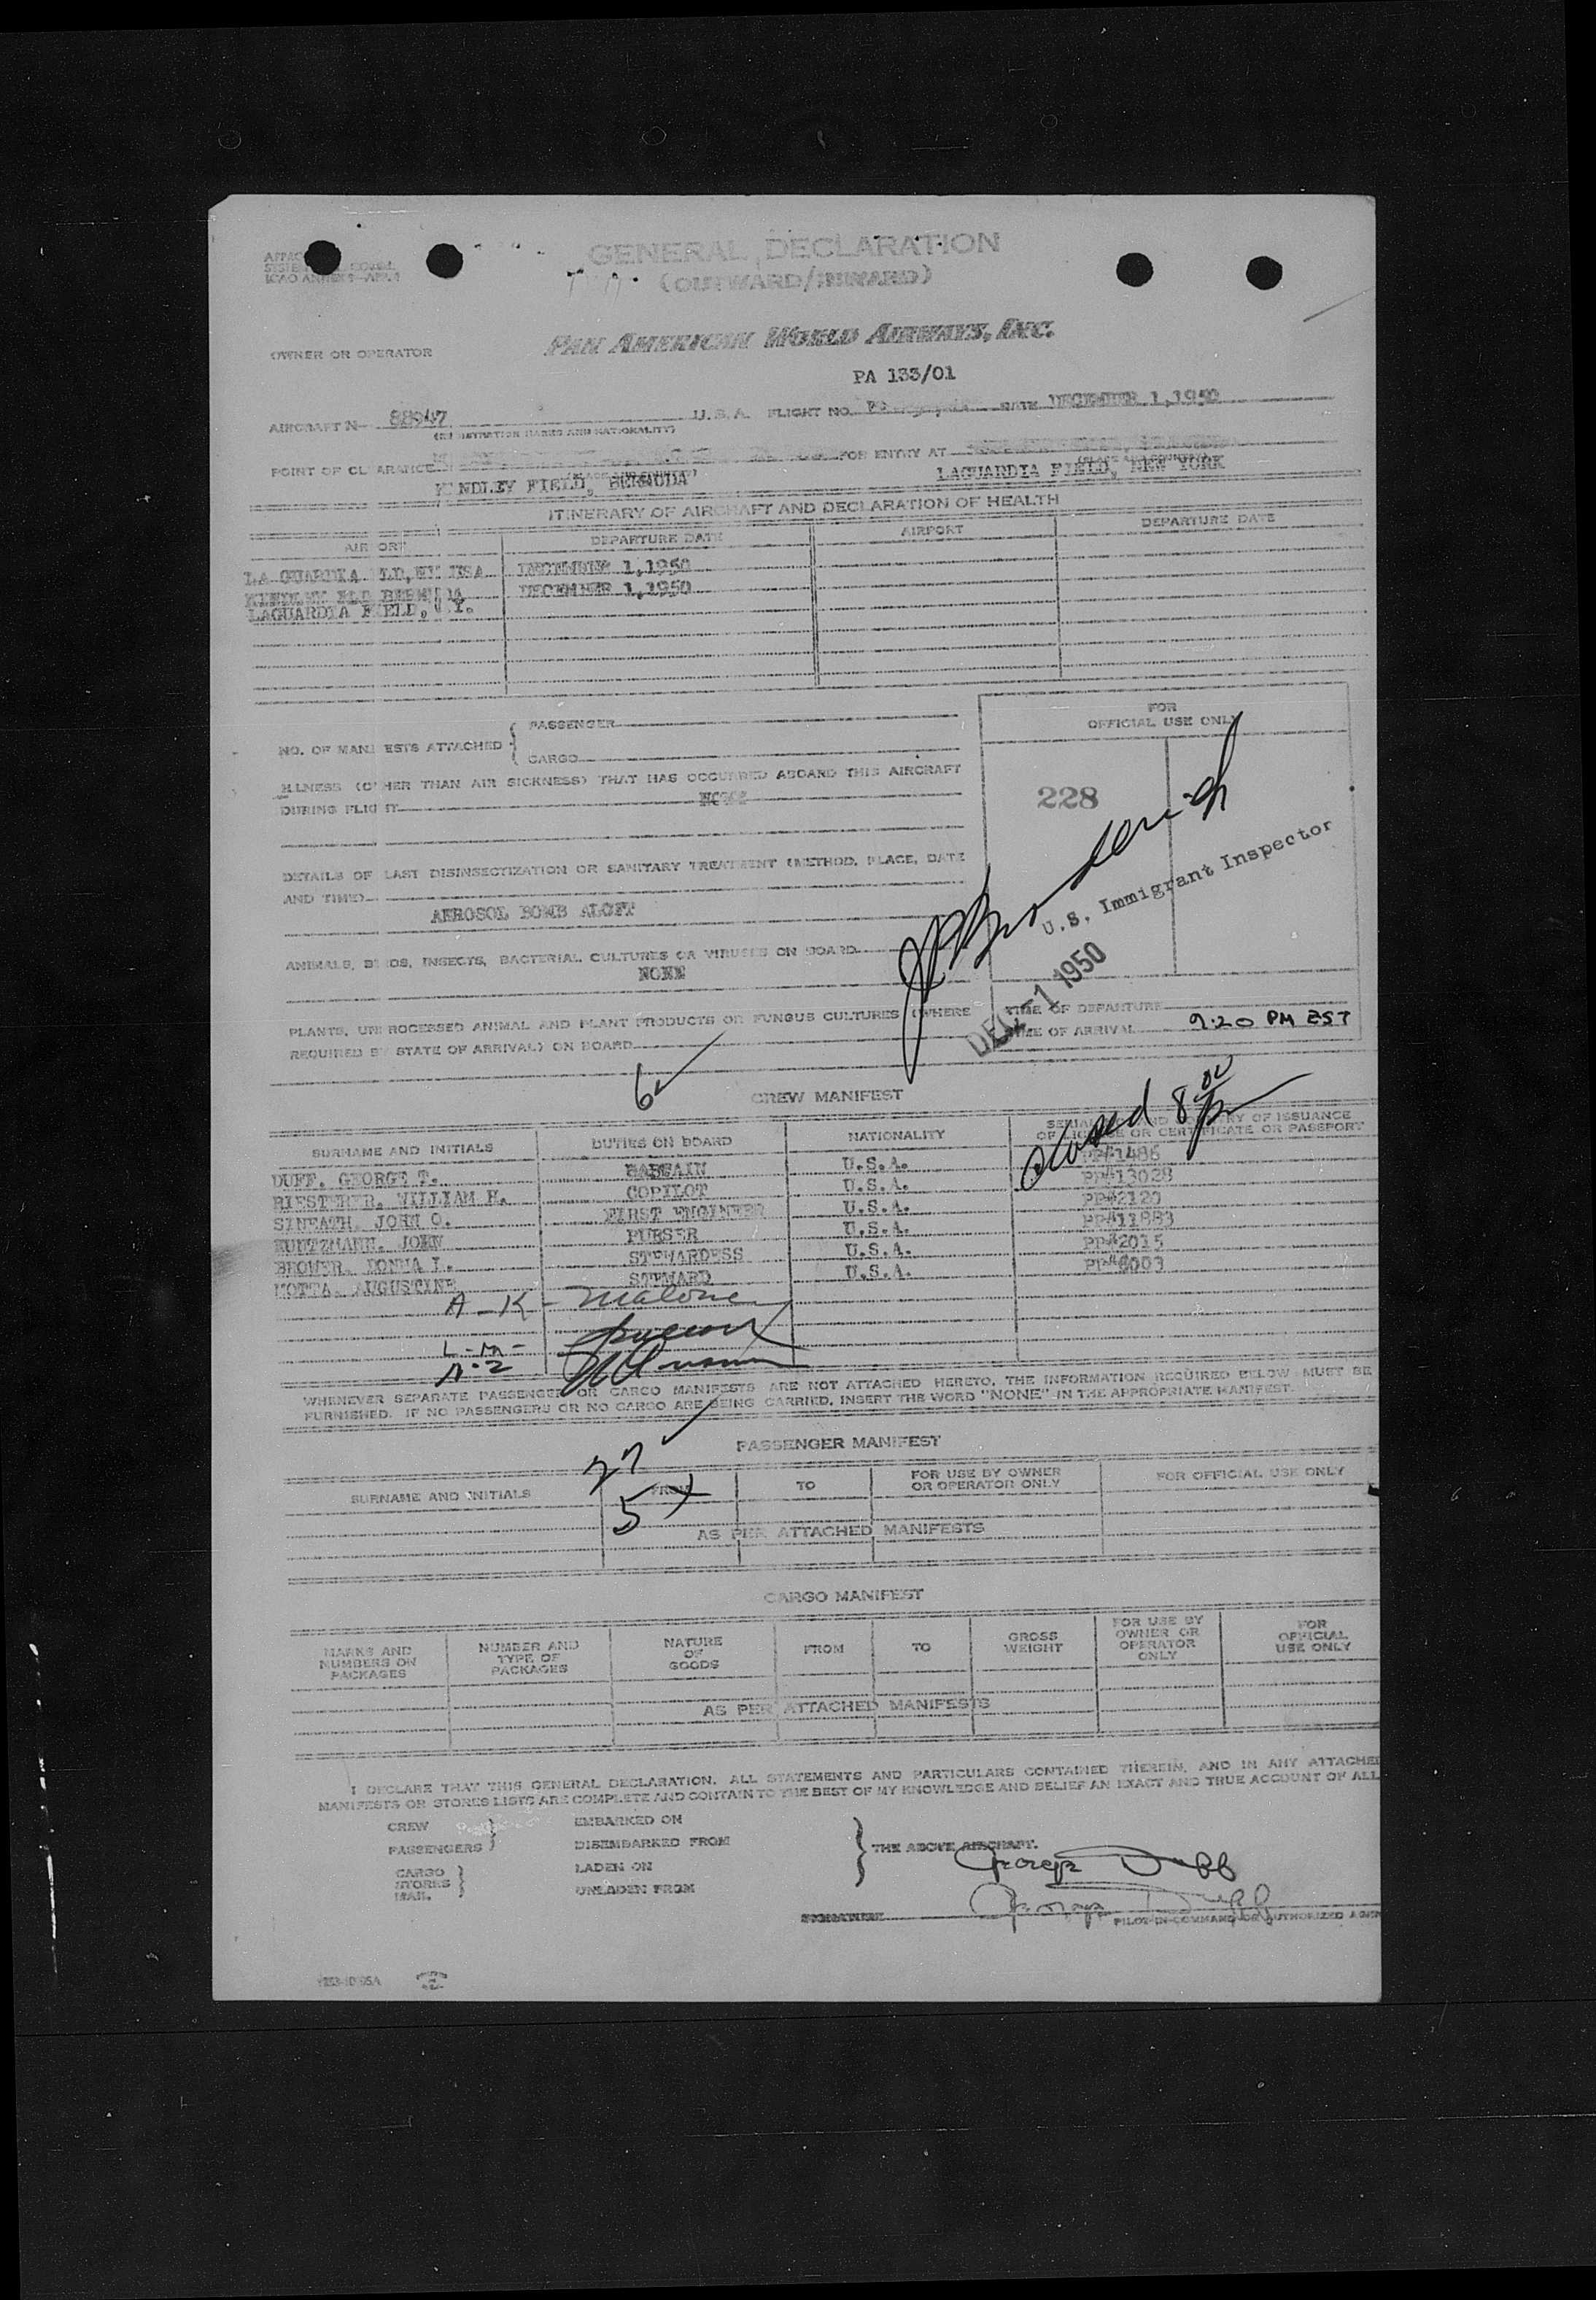 GENERAL DECLARATION
(OUTWARD/INWARD)
ICAO ANNEX 9—APP. 1
OWNER OR OPERATOR
PAN AMERICAN WORLD AIRWAYS, INC.
PA 133/01
AIRCRAFT N— 88947 U.S.A. FLIGHT NO. DATE DECEMBER 1,1950
(REGISTRATION MARKS AND NATIONALITY)
POINT OF CL ARANCE FOR ENTRY AT
K NDLEY FIELD, BERMUDA LAGUARDIA FIELD, NEW YORK
ITINERARY OF AIRCRAFT AND DECLARATION OF HEALTH
AIR ORT DEPARTURE DATE AIRPORT DEPARTURE DATE
LA GUARDIA LD, USA DECEMBER 1,1950
KINDLEY FLD DECEMBER 1,1950
LAGUARDIA FIELD, Y.
FOR
OFFICIAL USE ONLY
NO. OF MAN ESTS ATTACHED { PASSENGER
CARGO
ILLNESS (OTHER THAN AIR SICKNESS) THAT HAS OCCURRED ABOARD THIS AIRCRAFT
DURING FLIGHT
228
DETAILS OF LAST DISINSECTIZATION OR SANITARY TREATMENT (METHOD, PLACE, DATE
AND TIME)
AEROSOL BOMB ALOFT
U.S. Immigrant Inspector
DEC -1 1950
ANIMALS, B RDS, INSECTS, BACTERIAL CULTURES OR VIRUSES ON BOARD
NONE
PLANTS, UN ROCESSED ANIMAL AND PLANT PRODUCTS OR FUNGUS CULTURES (WHERE
REQUIRED BY STATE OF ARRIVAL) ON BOARD
TIME OF DEPARTURE
TIME OF ARRIVAL 9:20 PM EST
6
CREW MANIFEST
closed 8
SURNAME AND INITIALS DUTIES ON BOARD NATIONALITY SERIAL AND COUNTRY OF ISSUANCE
OF LICENSE OR CERTIFICATE OR PASSPORT
DUFF, GEORGE T. CAPTAIN U.S.A. PP#1486
RIESTERER, WILLIAM H. COPILOT U.S.A. PP#13028
SINEATH, JOHN O. FIRST ENGINEER U.S.A. PP#2120
KUNTZMANN, JOHN PURSER U.S.A. PP#11883
BROWER, DONNA I. STEWARDESS U.S.A. PP#2015
MOTTA, AUGUSTINE STEWARD U.S.A.
A - K - Malone
L - M -
N - Z
WHENEVER SEPARATE PASSENGER OR CARGO MANIFESTS ARE NOT ATTACHED HERETO, THE INFORMATION REQUIRED BELOW MUST BE
FURNISHED. IF NO PASSENGERS OR NO CARGO ARE BEING CARRIED, INSERT THE WORD "NONE" IN THE APPROPRIATE MANIFEST.
PASSENGER MANIFEST
SURNAME AND INITIALS FROM TO FOR USE BY OWNER
OR OPERATOR ONLY FOR OFFICIAL USE ONLY
AS PER ATTACHED MANIFESTS
CARGO MANIFEST
MARKS AND
NUMBERS ON
PACKAGES
NUMBER AND
TYPE OF
PACKAGES
NATURE
OF
GOODS
FROM
TO
GROSS
WEIGHT
FOR USE BY
OWNER OR
OPERATOR
ONLY
FOR
OFFICIAL
USE ONLY
AS PER ATTACHED MANIFESTS
I DECLARE THAT THIS GENERAL DECLARATION, ALL STATEMENTS AND PARTICULARS CONTAINED THEREIN, AND IN ANY ATTACHED
MANIFESTS OR STORES LISTS ARE COMPLETE AND CONTAIN TO THE BEST OF MY KNOWLEDGE AND BELIEF AN EXACT AND TRUE ACCOUNT OF ALL
CREW
PASSENGERS }
CARGO
STORES
MAIL }
EMBARKED ON
DISEMBARKED FROM
LADEN ON
UNLADEN FROM
} THE ABOVE AIRCRAFT.
George Duff
SIGNATURE George Duff
PILOT-IN-COMMAND OR AUTHORIZED AGEN